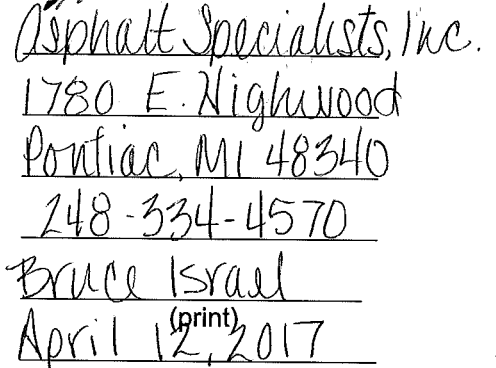 Asphalt Specialists, Inc.
1780 E. Highwood
Pontiac, MI 48340
248-334-4570
Bruce Israel
(print)
April 12, 2017